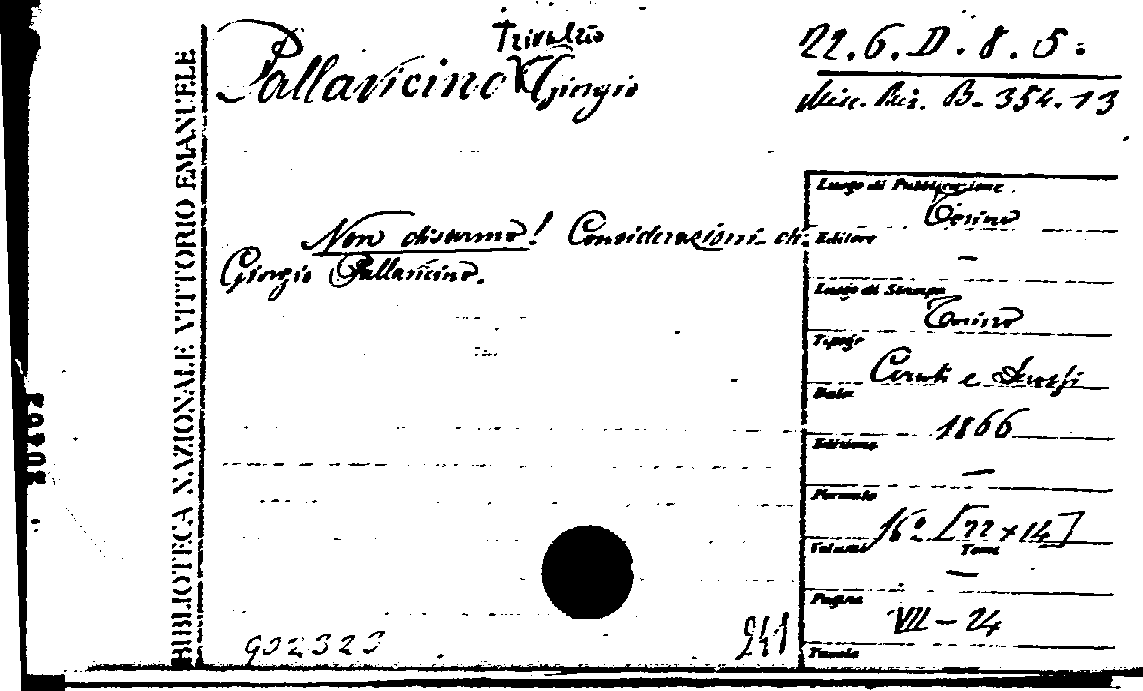 Trivulzio
Pallavicino Giorgio
22.6.D.8.5:
Misc. Ris. B. 354.13
BIBLIOTECA NAZIONALE VITTORIO EMANUELE
Non disarmo! Considerazioni di
Giorgio Pallavicino.
Luogo di Pubblicazione
Torino
Editore
—
Luogo di Stampa
Torino
Tipogr
Ceruti e
Data
1866
Edizione
—
Formato
16° [22 x 14]
Volumi Tomi
—
Pagine
VII - 24
Tavole
902323
241